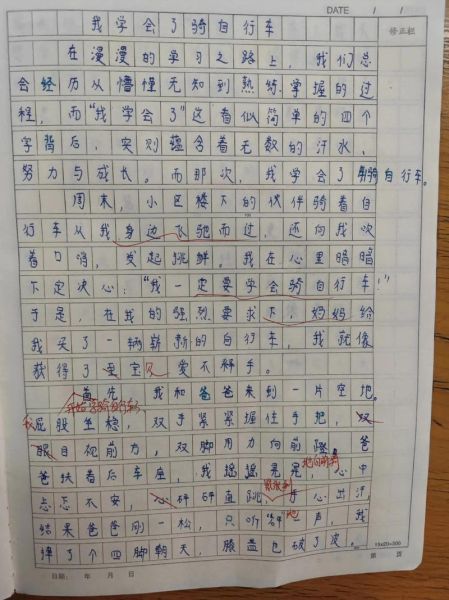 DATE / /
我学会了骑自行车
修正栏
在漫漫的学习之路上，我们总
会经历从懵懂无知到熟练掌握的过
程，而“我学会了”这看似简单的四个
字背后，实则蕴含着无数的汗水、
努力与成长。而那次，我学会了骑自行车。
周末，小区楼下的伙伴骑着自
行车从我身边飞驰而过，还向我吹
着口哨，发起挑衅。我在心里暗暗
下定决心：“我一定要学会骑自行车！”
于是，在我的强烈要求下，妈妈给
我买了一辆崭新的自行车，我就像
获得了至宝贝爱不释手。
首先，我和爸爸来到一片空地。
我屁股坐稳，双手紧紧握住手把，双
眼目视前方，双脚用力向前蹬。爸
爸扶着后车座，我摇摇晃晃地向前，心中
忐忑不安，心砰砰直跳，手心出汗，
结果爸爸刚一松，只听“ 地一声，我
摔了个四脚朝天，膝盖也破了皮。
15x20=300
日期： 年 月 日
第 页